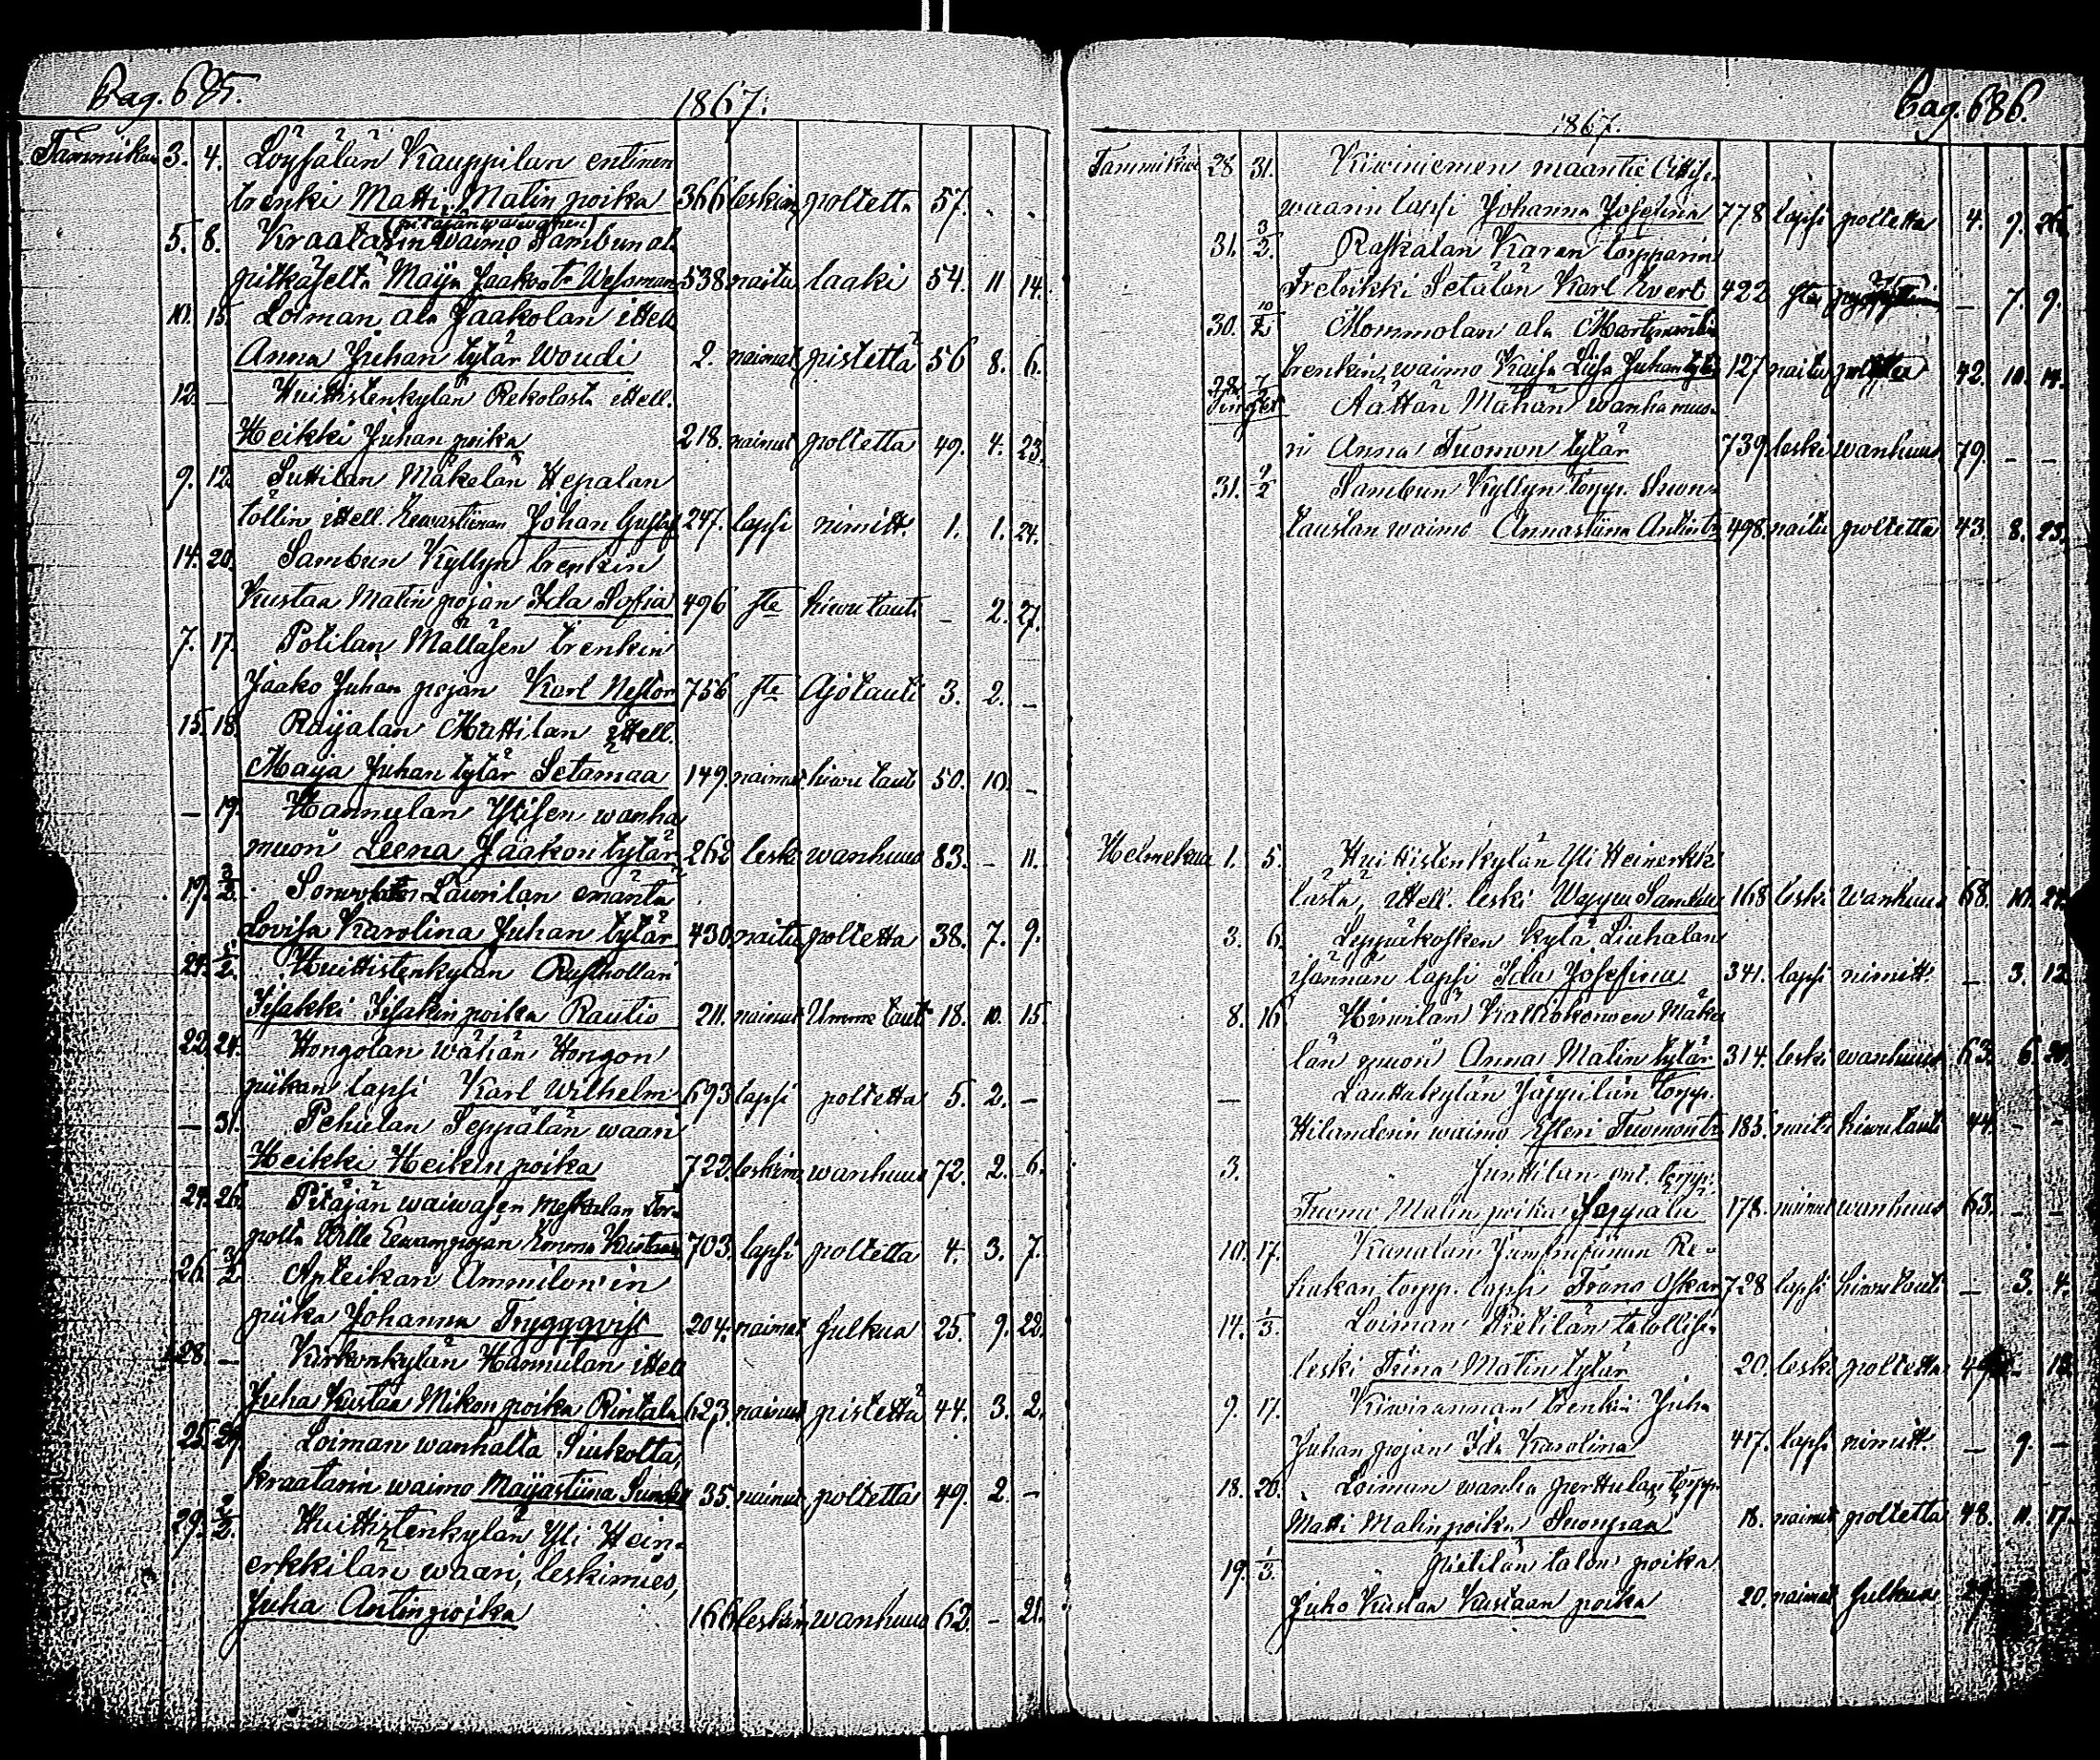 Pag. 685.
1867.
Tammikuu 3. 4. Löysälän Kauppilan entinen
trenki Matti Matin poika 366 leskim poltetta 57. - -
(pitäjän waiwanen)
5. 8. Kraatarin waimo Sambun al.
pitkäselta Maija Jaakost. Wessman 538 naitu laaki 54. 11 14.
10. 15. Loiman ala Jaakolan ittell.
Anna Juhan tytär Woudi 2. naimat. pistettä 56 8. 6.
12. — Huittistenkylän Rekolasta ittell.
Heikki Juhan poika 218. naimat poltetta 49. 4. 23.
9. 12. Suttilan Mäkelän Hepalan
töllin ittell. Eewastiinan Johan Gustaf 247. lapsi nimitt. 1. 1. 24.
14. 20. Sambun Kyllyn trenkin
Kustaa Matin pojan Ida Sofia 496 ste kiwutauti - 2. 27.
7. 17. Potilan Mälläsen trenkin
Jaako Juhan pojan Karl Nestor 756 ste Ajotauti 3. 2. -
15. 18. Raijalan Mattilan ittell.
Maija Juhan tytär Setämaa 149. naimat. kiwutauti 50. 10. -
— 19. Hannulan Ylisen wanha
muori Leena Jaakon tytär 262 leski wanhuus 83. - 11.
17. 3/2. Lawrilan emäntä
Lovisa Karolina Juhan tytär 430 naitu poltetta 38. 7. 9.
21. 1/2. Huittistenkylän Rusthollari
Iisakki Iisakin poika Rautio 211. naimat Umme tauti 18. 10. 15.
22. 24. Hongolan wähän Hongon
piikan lapsi Karl Wilhelm 693 lapsi poltetta 5. 2. -
— 31. Pehulan Seppälän waari
Heikki Heikin poika 722. leskim wanhuus 72. 2. 6.
24. 26. Pitäjän waiwasen Meskalan tor-
polta Wille Eewanpojan Emma Kustaawa 703. lapsi poltetta 4. 3. 7.
26. 3/2 Apteikan Ammilon'in
piika Johanna Tryggqvist 204. naimat Julkua 25. 9. 22.
28. — Kirkonkylän Hannulan ittell
Juha Kustaa Mikon poika Rintala 623. naimat pistettä 44. 3. 2.
25. 29. Loiman wanhalta Sinkolta,
kraatarin waimo Maijastiina 35. naimat poltetta 49. 2. -
29. 3/2. Huittistenkylän Yli Hein-
erkkilän waari, leskimies,
Juha Antin poika 166 leskim wanhuus 62. - 21.
Pag. 686.
1867.
Tammikuu 28 31. Kiwiniemen maantie
waarin lapsi Johanna Josefina 778 lapsi poltetta 4. 9. 26.
31. 3/2. Raskalan Karen torpparin
Fredrikki Setälän Karl Evert 422 ste — 7. 9.
30. 10/2 Mommolan ala Martinmäen
trenkin waimo Kaisa Liisa Juhan tytär 127 naitu 42. 10. 14.
Aättän Mähän wanha muo-
ri Anna Tuomon tytär 739. leski wanhuus 79. - -
31. 9/2 Sambun Kyllyn torpp.
taustan waimo Annastiina Antint. 498. naitu poltetta 43. 8. 23.
Helmekuu 1. 5. Huittistenkylän Yli Heinerkki-
lästä, ittell. leski Wappu 168 leski wanhuus 68. 10. 24.
3. 6. Leppäkosken kylä Liuhalan
isännän lapsi Ida Josefina 341. lapsi nimitt. - 3. 12
8. 16 Kalliokonsen Mäke
län muori Anna Matin tytär 314. leski wanhuus 63. 6.
— Lauttakylän Jäppilän torpp.
Hilanderin waimo Esteri Tuomont. 185. naitu kiwutauti 44. - -
3. Junttilan ent. torpp.
Tuomo Matin poika Seppälä 178. naimat wanhuus 63. - -
10. 17. Kanalan Re-
kukan torpp. lapsi Frans Oskar 728 lapsi kiwutauti - 3. 4.
14. 1/3. Loiman Prietilän talollisen
leski Stiina Matin tytär 20. leski poltetta 18
9. 17. Kiwirannan trenkin Juha
Juhan pojan Ida Karolina 417. lapsi nimitt. - 9. -
18. 20. Loiman wanha perttulan torpp.
Matti Matin poika Suonpää 18. naimat poltetta 48. 11. 17.
19. 1/3. prietilän talon poika
Juho Kustaa Kustaan poika 20. naimat Julkua